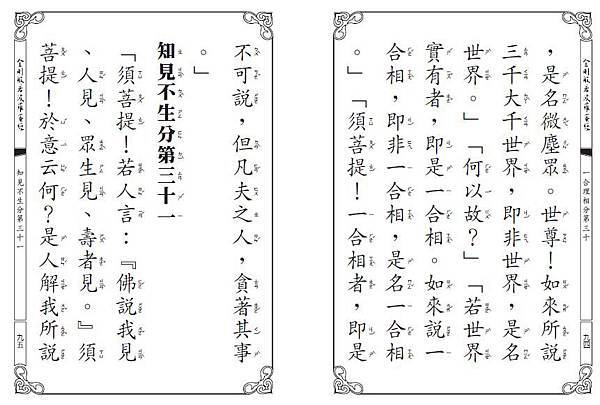 金剛般若波羅蜜經
一合理相分第三十
九四
，是名微塵眾。世尊！如來所說
三千大千世界，即非世界，是名
世界。」「何以故？」「若世界
實有者，即是一合相。如來說一
合相，即非一合相，是名一合相
。」「須菩提！一合相者，即是
不可說，但凡夫之人，貪著其事
。」
知見不生分第三十一
「須菩提！若人言：『佛說我見
、人見、眾生見、壽者見。』須
菩提！於意云何？是人解我所說
金剛般若波羅蜜經
知見不生分第三十一
九五